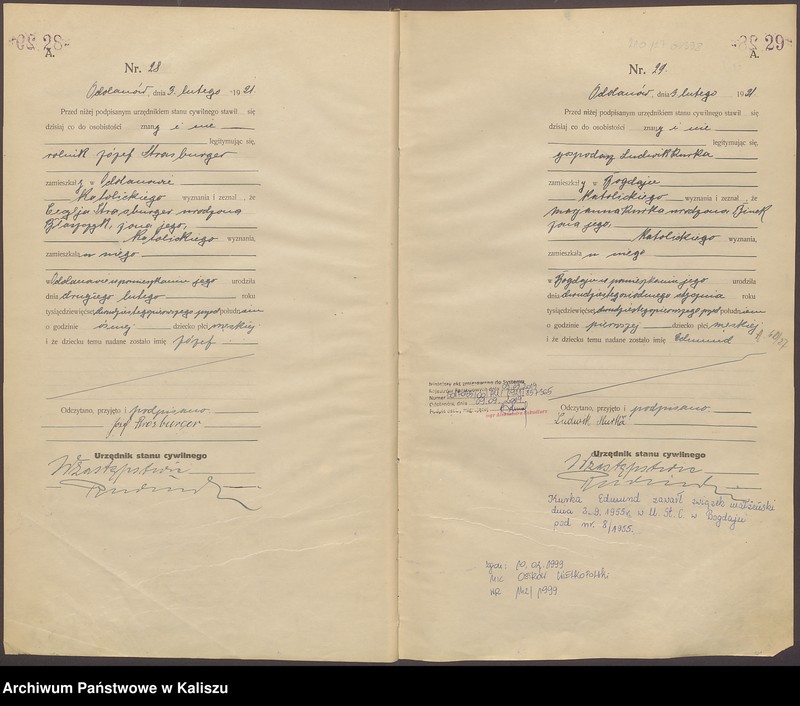 28
A.
Nr. 28
Odolanów, dnia 3. lutego 1921.
Przed niżej podpisanym urzędnikiem stanu cywilnego stawił się
dzisiaj co do osobistości znany i nie
legitymując się,
rolnik Józef Strasburger
zamieszkały w Odolanowie
Katolickiego wyznania i zeznał, że
Strasburger urodzona
żona jego,
Katolickiego wyznania,
zamieszkała u niego
w Odolanowie w pomieszkaniu jego urodziła
dnia drugiego lutego roku
tysiącdziewięćset dwudziestegopierwszego przed południem
o godzinie ósmej dziecko płci męskiej
i że dziecku temu nadane zostało imię Józef
Odczytano, przyjęto i podpisano
Józef Strasburger
Urzędnik stanu cywilnego
W zastępstwie
29
A.
Nr. 29.
Odolanów, dnia 3. lutego 1921
Przed niżej podpisanym urzędnikiem stanu cywilnego stawił się
dzisiaj co do osobistości znany i nie
legitymując się,
gospodarz Ludwik Kurka
zamieszkały w Bogdaju
Katolickiego wyznania i zeznał, że
Maryanna Kurka urodzona
żona jego,
Katolickiego wyznania,
zamieszkała u niego
w Bogdaju w pomieszkaniu jego urodziła
dnia dwudziestegosiódmego stycznia roku
tysiącdziewięćset dwudziestegopierwszego przed południem
o godzinie pierwszej dziecko płci męskiej
i że dziecku temu nadane zostało imię Edmund
Odczytano, przyjęto i podpisano
Ludwik Kurka
Urzędnik stanu cywilnego
W zastępstwie
Kurka Edmund zawarł związek małżeński
dnia 3.9.1955r. w U.St.C. w Bogdaju
pod nr. 8/1955.
zgon: 10.09.1999
USC OSTRÓW WIELKOPOLSKI
NR 142/1999
Archiwum Państwowe w Kaliszu